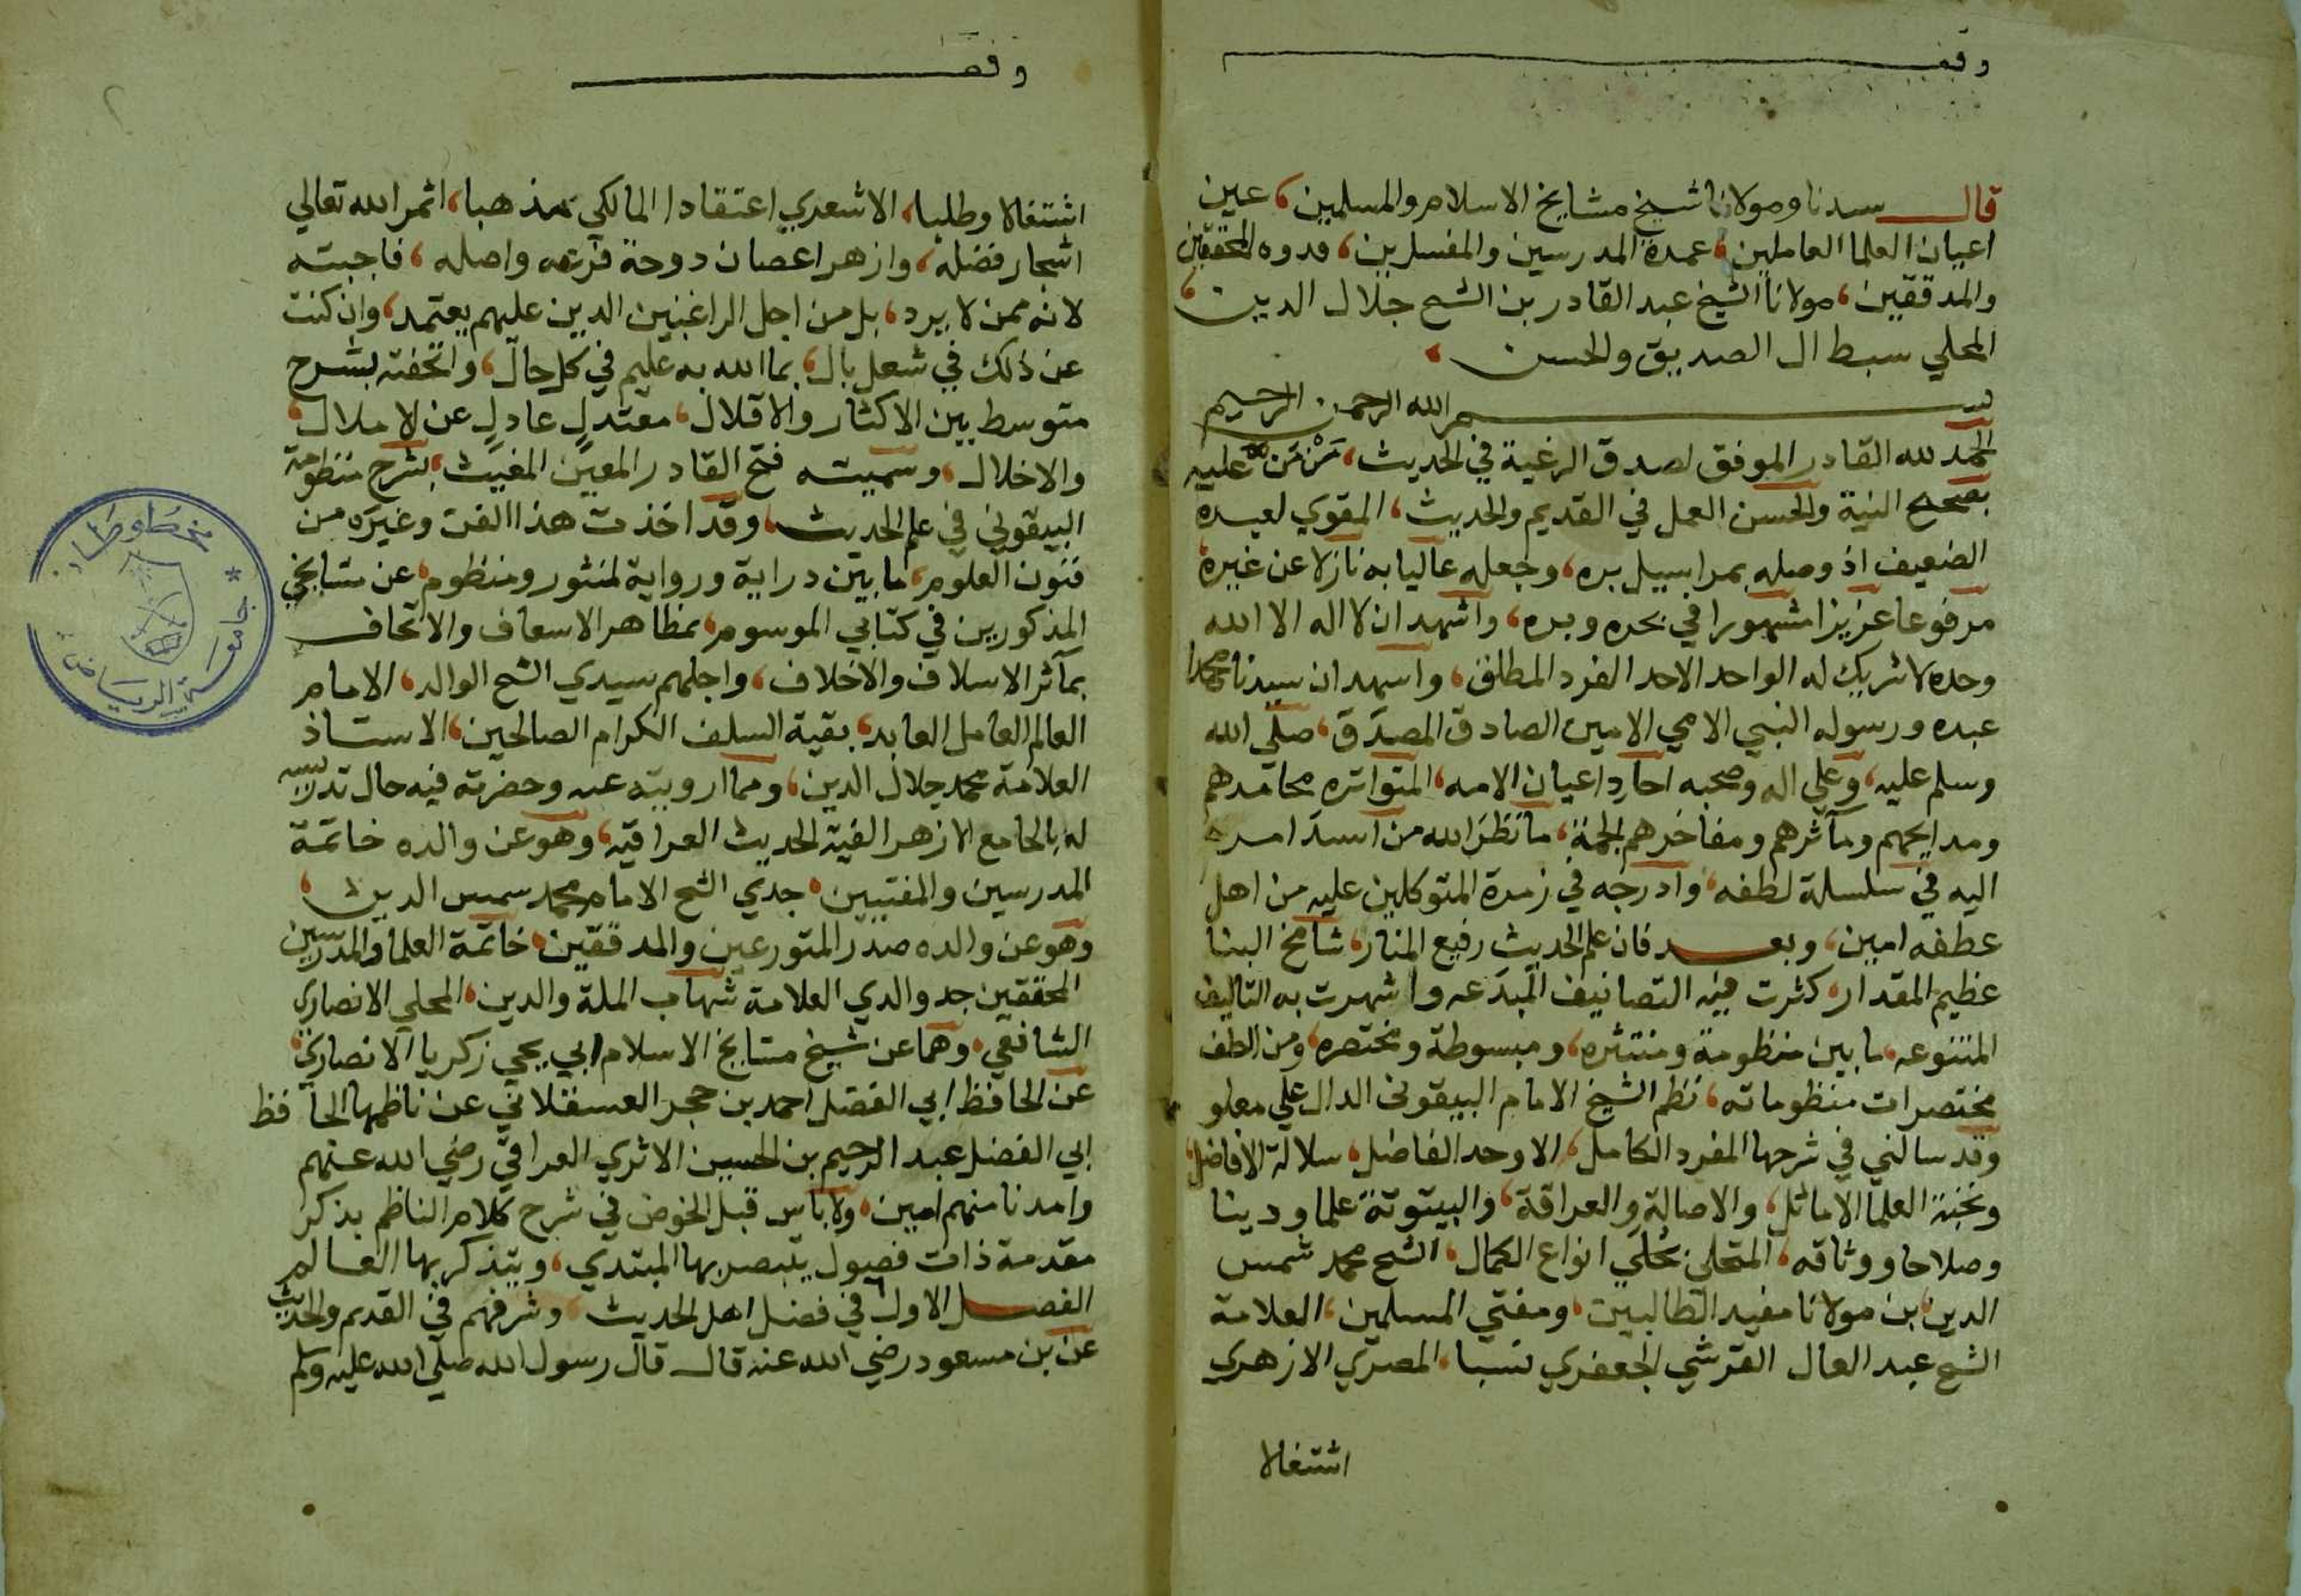 وقف
قال سيدنا ومولانا شيخ مشايخ الاسلام والمسلمين، عين
اعيان العلما العاملين، عمدة المدرسين والمفسرين، قدوه المحققين
والمدققين، مولانا الشيخ عبد القادر بن الشيخ جلال الدين،
المحلي سبط ال الصديق والحسن،
بسم الله الرحمن الرحيم
الحمد لله القادر الموفق لصدق الرغبة في الحديث، من من عليه
بصحيح النية والحسن العمل في القديم والحديث، المقوي لعبده
الضعيف اذ وصله بمراسيل بره، وجعله عاليا به نازلا عن غيره
مرفوعا عزيزا مشهورا في بحره وبره، واشهد ان لا اله الا الله
وحده لا شريك له الواحد الاحد الفرد المطلق، واشهد ان سيدنا محمدا
عبده ورسوله النبي الامي الامين الصادق المصدق، صلى الله
وسلم عليه، وعلى اله وصحبه احاد اعيان الامه، المتواتره محامدهم
ومدايحهم ومآثرهم ومفاخرهم الجمة، ما نظر الله من اسند امره
اليه في سلسلة لطفه، وادرجه في زمرة المتوكلين عليه من اهل
عطفه امين، وبعد فان علم الحديث رفيع المنار، شامخ البنا
عظيم المقدار، كثرت فيه التصانيف المبدعه واشهرت به التاليف
المتنوعه، ما بين منظومة ومنتثره، ومبسوطة ومختصره، ومن الطف
مختصرات منظوماته، نظم الشيخ الامام البيقوني الدال على معلو
وقد سالني في شرحها المفرد الكامل، الاوحد الفاضل، سلالة الافاضل،
ونخبة العلما الاماثل، والاصالة والعراقة، والبيتوتة علما ودينا
وصلاحا ووثاقه، المتحلي بحلي انواع الكمال، الشيخ محمد شمس
الدين، بن مولانا مفيد الطالبين، ومفتي المسلمين، العلامة
الشيخ عبد العال القرشي الجعفري نسبا، المصري الازهري
اشتغالا
وقف
٢
اشتغالا وطلبا، الاشعري اعتقادا المالكي مذهبا، اثمر الله تعالى
اشجار فضله، وازهر اغصان دوحة فرعه واصله، فاجبته
لانه ممن لا يرد، بل من اجل الراغبين الدين عليهم يعتمد، وان كنت
عن ذلك في شغل بال، بما الله به عليم في كل حال، واتحفته بشرح
متوسط بين الاكثار والاقلال، معتدل عادل عن الاملال،
والاخلال، وسميته فتح القادر المعين المغيث، بشرح منظومة
البيقوني في علم الحديث، وقد اخذت هذا الفن وغيره من
فنون العلوم، ما بين دراية ورواية لمنثور ومنظوم، عن مشايخي
المذكورين في كتابي الموسوم، بمظاهر الاسعاف والاتحاف
بمآثر الاسلاف والاخلاف، واجلهم سيدي الشيخ الوالد، الامام
العالم العامل العابد، بقية السلف الكرام الصالحين، الاستاذ
العلامة محمد جلال الدين، ومما ارويته عنه وحضرته فيه حال تدريسه
له بالجامع الازهر الفية الحديث العراقيه، وهو عن والده خاتمة
المدرسين والمفتيين، جدي الشيخ الامام محمد شمس الدين،
وهو عن والده صدر المتورعين والمدققين، خاتمة العلما والمدرسين
المحققين جد والدي العلامة شهاب الملة والدين، المحلي الانصاري
الشافعي، وهما عن شيخ مشايخ الاسلام ابي يحيي زكريا الانصاري،
عن الحافظ ابي الفضل احمد بن حجر العسقلاني عن ناظمها الحافظ
ابي الفضل عبد الرحيم بن الحسين الاثري العراقي رضي الله عنهم
وامدنا منهم امين، ولا باس قبل الخوض في شرح كلام الناظم بذكر
مقدمة ذات فصول يتبصر بها المبتدي، ويتذكر بها العالم
الفصل الاول في فضل اهل الحديث، وشرفهم في القديم والحديث
عن بن مسعود رضي الله عنه قال قال رسول الله صلى الله عليه وسلم
مخطوطات
* جامعة الرياض